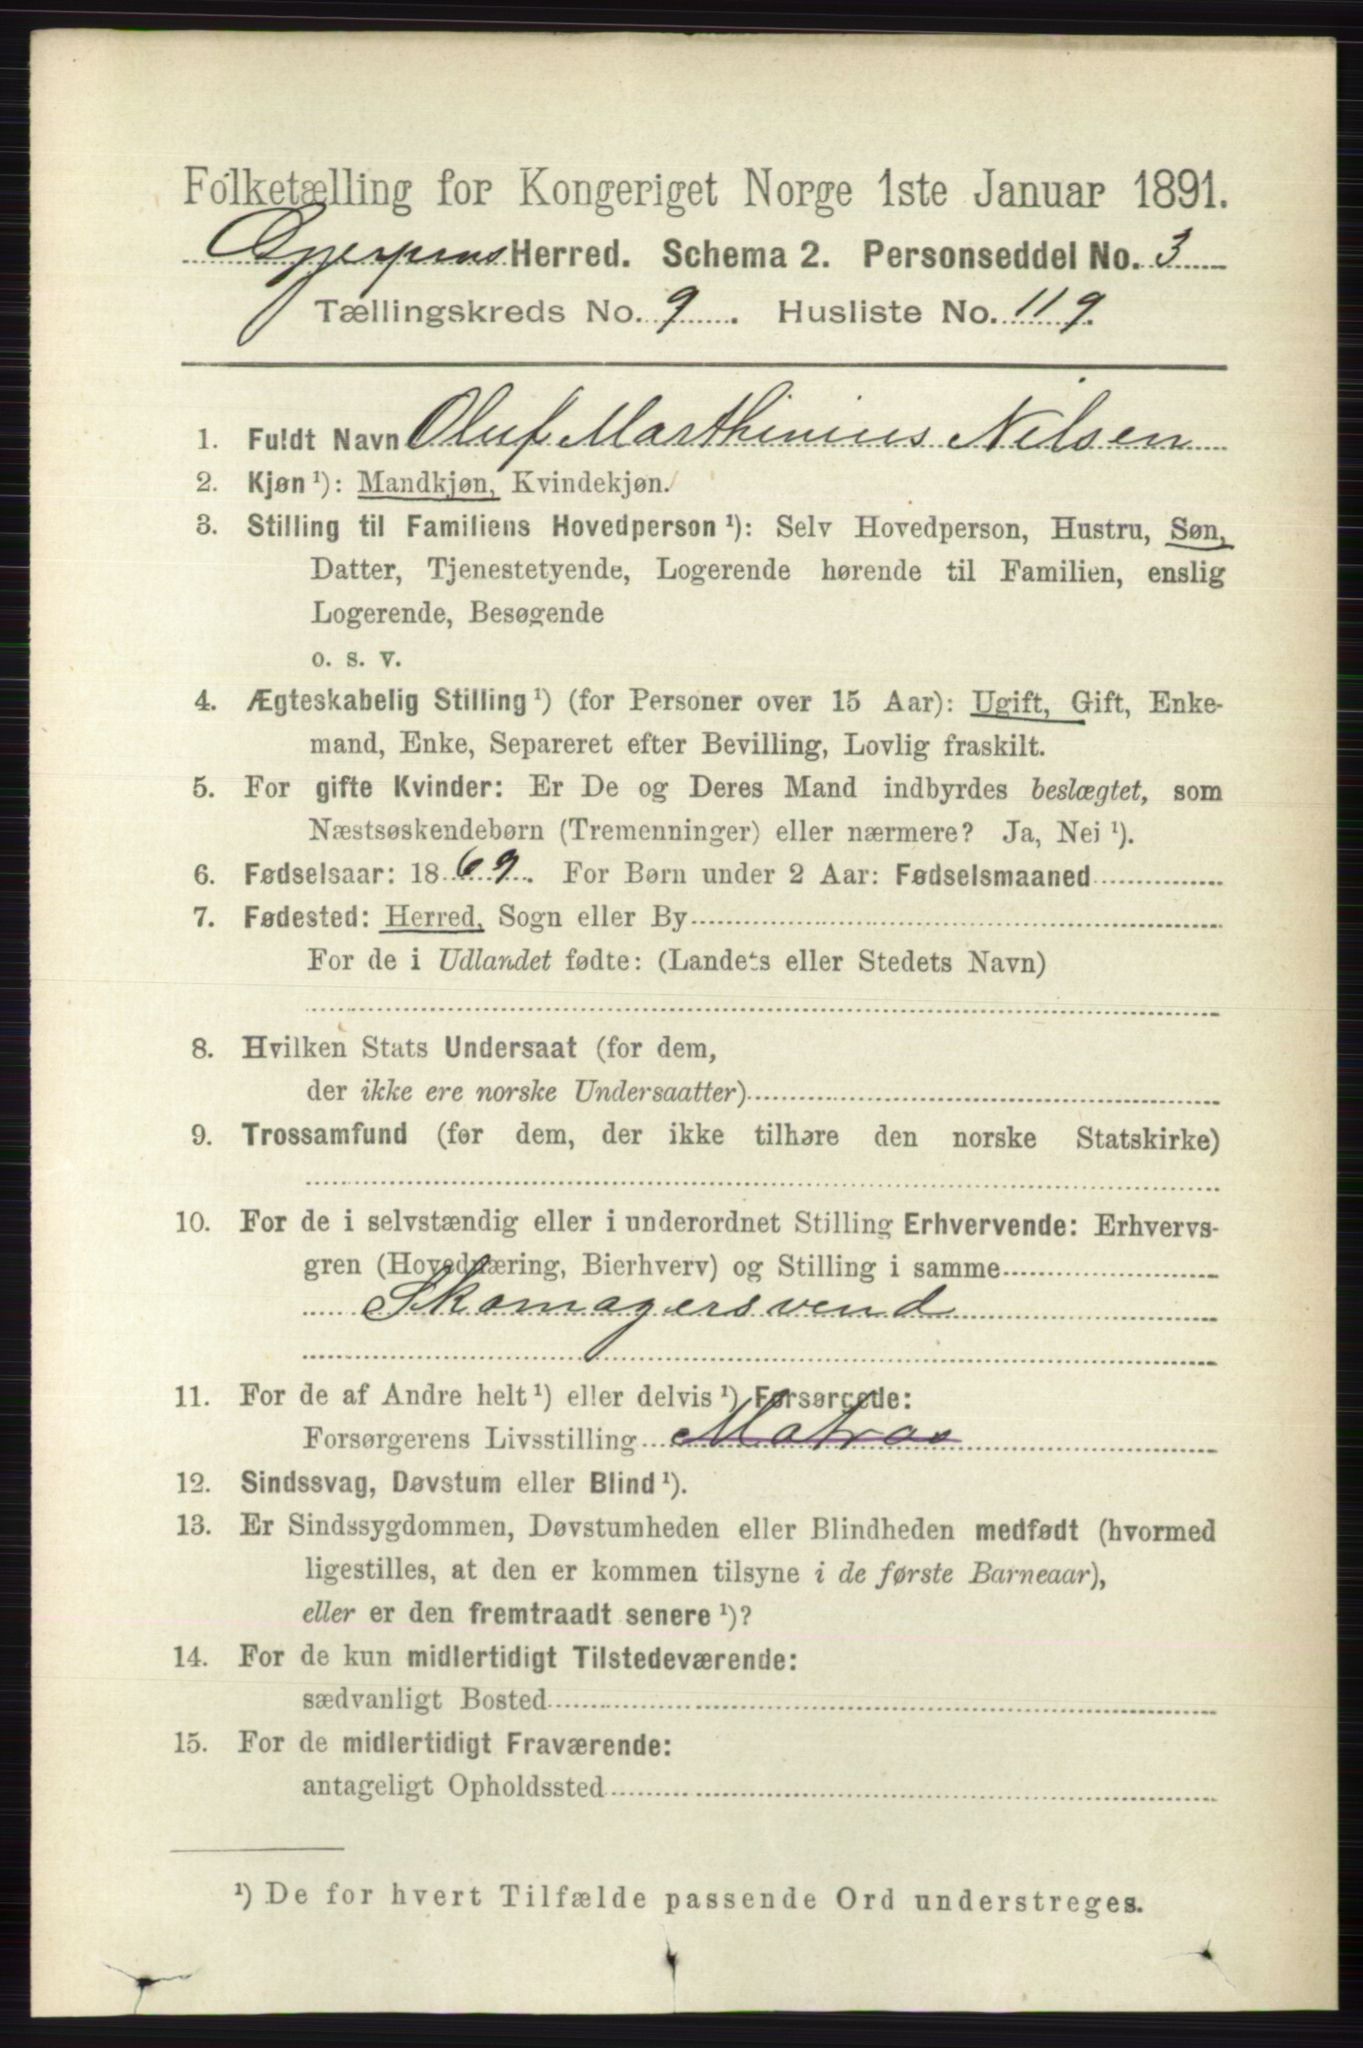 Folketælling for Kongeriget Norge 1ste Januar 1891.
Gjerpens Herred. Schema 2. Personseddel No. 3
Tællingskreds No. 9. Husliste No. 119.
1. Fuldt Navn Oluf Marthinius Nilsen
2. Kjøn ¹): Mandkjøn, Kvindekjøn.
3. Stilling til Familiens Hovedperson ¹): Selv Hovedperson, Hustru, Søn,
Datter, Tjenestetyende, Logerende hørende til Familien, enslig
Logerende, Besøgende
o. s. v.
4. Ægteskabelig Stilling ¹) (for Personer over 15 Aar): Ugift, Gift, Enke-
mand, Enke, Separeret efter Bevilling, Lovlig fraskilt.
5. For gifte Kvinder: Er De og Deres Mand indbyrdes beslægtet, som
Næstsøskendebørn (Tremenninger) eller nærmere? Ja, Nei ¹).
6. Fødselsaar: 1869. For Børn under 2 Aar: Fødselsmaaned
7. Fødested: Herred, Sogn eller By
For de i Udlandet fødte: (Landets eller Stedets Navn)
8. Hvilken Stats Undersaat (for dem,
der ikke ere norske Undersaatter)
9. Trossamfund (for dem, der ikke tilhøre den norske Statskirke)
10. For de i selvstændig eller i underordnet Stilling Erhvervende: Erhvervs-
gren (Hovednæring, Bierhverv) og Stilling i samme
Skomagersvend
11. For de af Andre helt ¹) eller delvis ¹) Forsørgede:
Forsørgerens Livsstilling Matros
12. Sindssvag, Døvstum eller Blind ¹).
13. Er Sindssygdommen, Døvstumheden eller Blindheden medfødt (hvormed
ligestilles, at den er kommen tilsyne i de første Barneaar),
eller er den fremtraadt senere ¹)?
14. For de kun midlertidigt Tilstedeværende:
sædvanligt Bosted
15. For de midlertidigt Fraværende:
antageligt Opholdssted
¹) De for hvert Tilfælde passende Ord understreges.